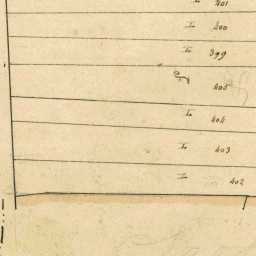 I 401
I 400
I 399
405
I 404
I 403
I 402